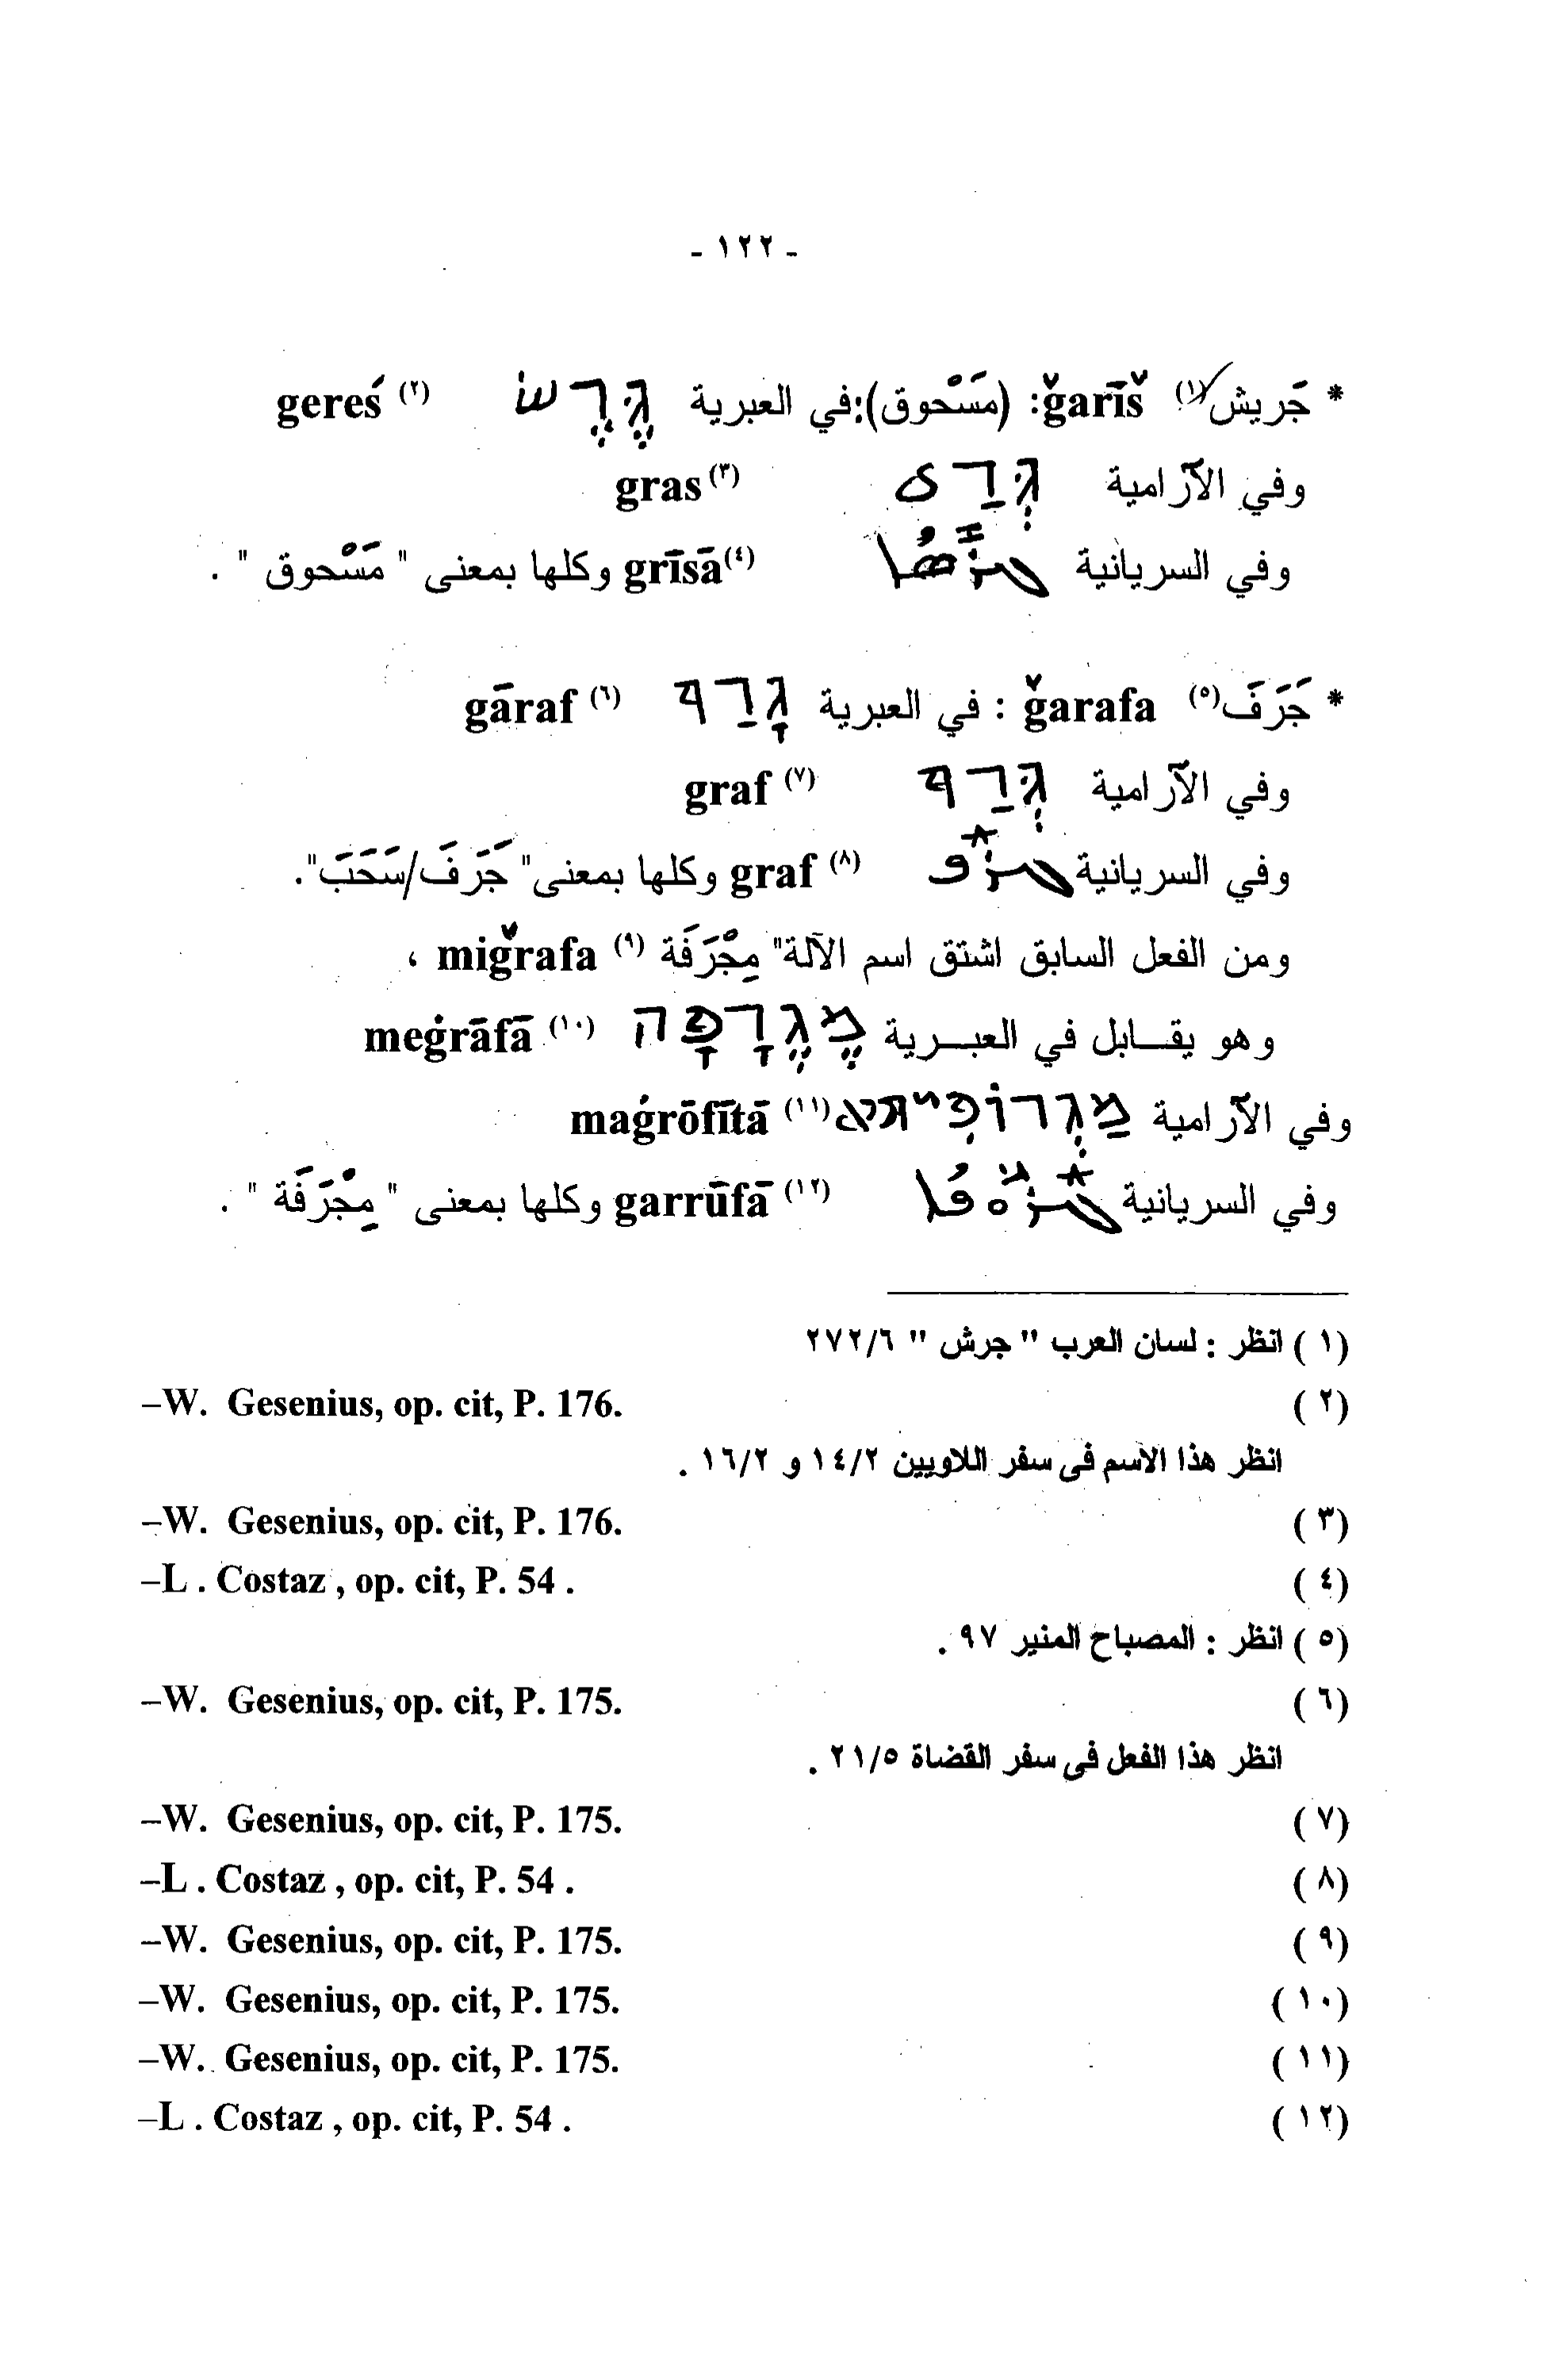 - ١٢٢ -
* جَريش (١) ǧarīš: (مَسْحوق):في العبرية גֶּרֶשׂ gereś (٢)
وفي الآرامية גְּרַס gras (٣)
وفي السريانية ܓܪܣܐ grīsā (٤) وكلها بمعنى " مَسْحوق " .
* جَرَفَ (٥) ǧarafa : في العبرية גָּרַף gāraf (٦)
وفي الآرامية גְּרַף graf (٧)
وفي السريانية ܓܪܦ graf (٨) وكلها بمعنى" جَرَفَ/سَحَبَ".
ومن الفعل السابق اشتق اسم الآلة" مِجْرَفَة (٩) miǧrafa ،
وهو يقـابل في العبـرية מֶגְרָפָה meġrāfā (١٠)
وفي الآرامية מַגְרוֹפִיתא maġrōfītā (١١)
وفي السريانية ܓܪܘܦܐ garrūfā (١٢) وكلها بمعنى " مِجْرَفَة " .
(١) انظر : لسان العرب " جرش " ٢٧٢/٦
(٢) –W. Gesenius, op. cit, P. 176.
انظر هذا الاسم فى سفر اللاويين ١٤/٢ و ١٦/٢ .
(٣) –W. Gesenius, op. cit, P. 176.
(٤) –L . Costaz , op. cit, P. 54 .
(٥) انظر : المصباح المنير ٩٧ .
(٦) –W. Gesenius, op. cit, P. 175.
انظر هذا الفعل فى سفر القضاة ٢١/٥ .
(٧) –W. Gesenius, op. cit, P. 175.
(٨) –L . Costaz , op. cit, P. 54 .
(٩) –W. Gesenius, op. cit, P. 175.
(١٠) –W. Gesenius, op. cit, P. 175.
(١١) –W. Gesenius, op. cit, P. 175.
(١٢) –L . Costaz , op. cit, P. 54 .